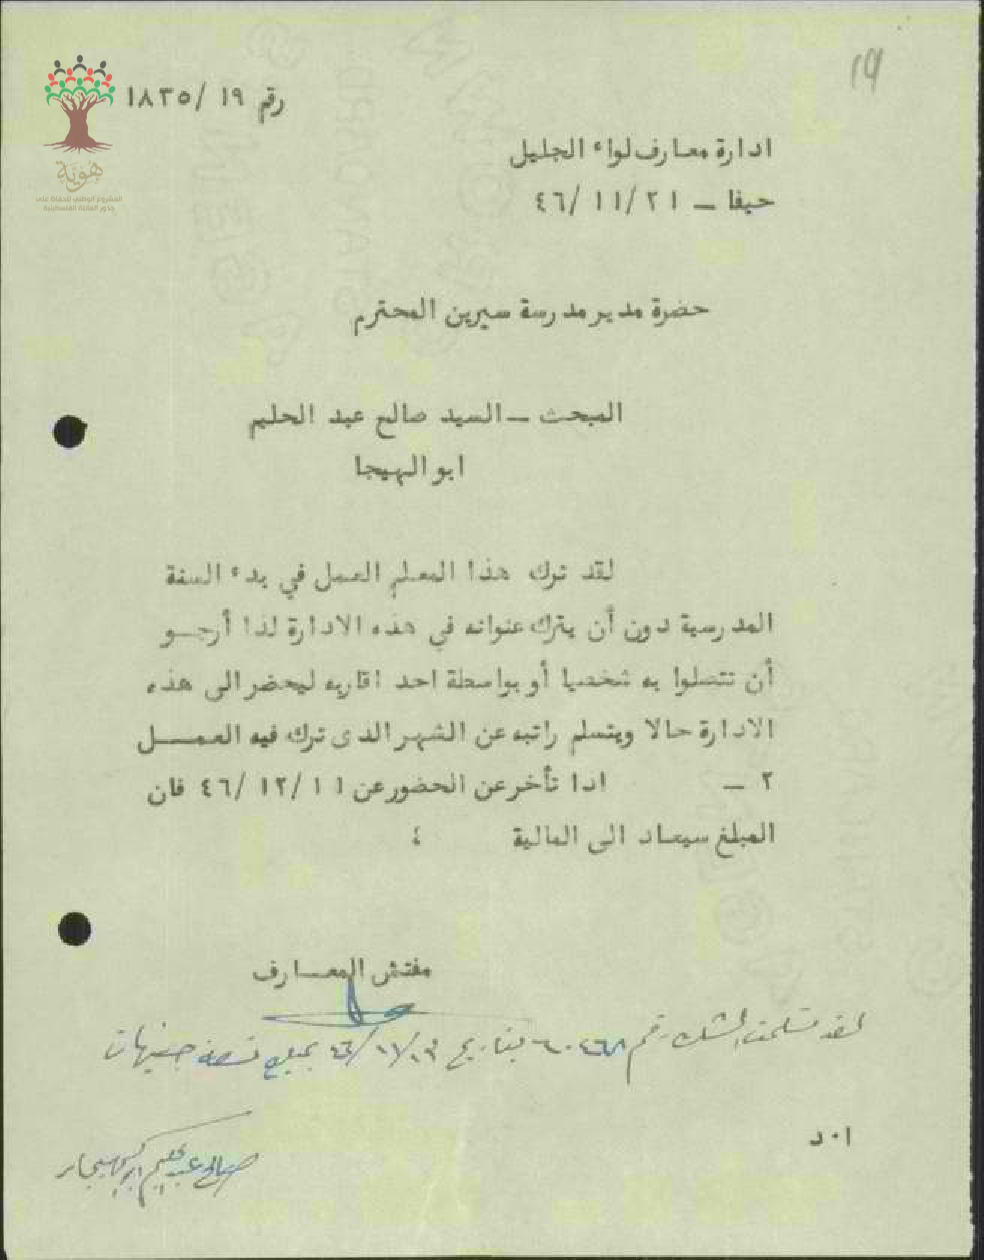 19
رقم ١٩ /١٨٣٥
هوية
المشروع الوطني للحفاظ على
جذور العائلة الفلسطينية
ادارة معارف لواء الجليل
حيفا – ٢١ /١١ /٤٦
حضرة مدير مدرسة سيرين المحترم
المبحث – السيد صالح عبد الحليم
ابو الهيجا
لقد ترك هذا المعلم العمل في بدء السنة
المدرسية دون أن يترك عنوانه في هذه الادارة لذا أرجو
أن تتصلوا به شخصيا أو بواسطة احد اقاربه ليحضر الى هذه
الادارة حالا ويتسلم راتبه عن الشهر الدى ترك فيه العمل
٢ – ادا تأخر عن الحضور عن ١١ /١٢ /٤٦ فان
المبلغ سيعاد الى المالية ٤
مفتش المعارف
لقد تسلمت الشك رقم بتاريخ بمبلغ تسعة جنيهات
ا٠د
صالح عبد الحليم ابو الهيجا